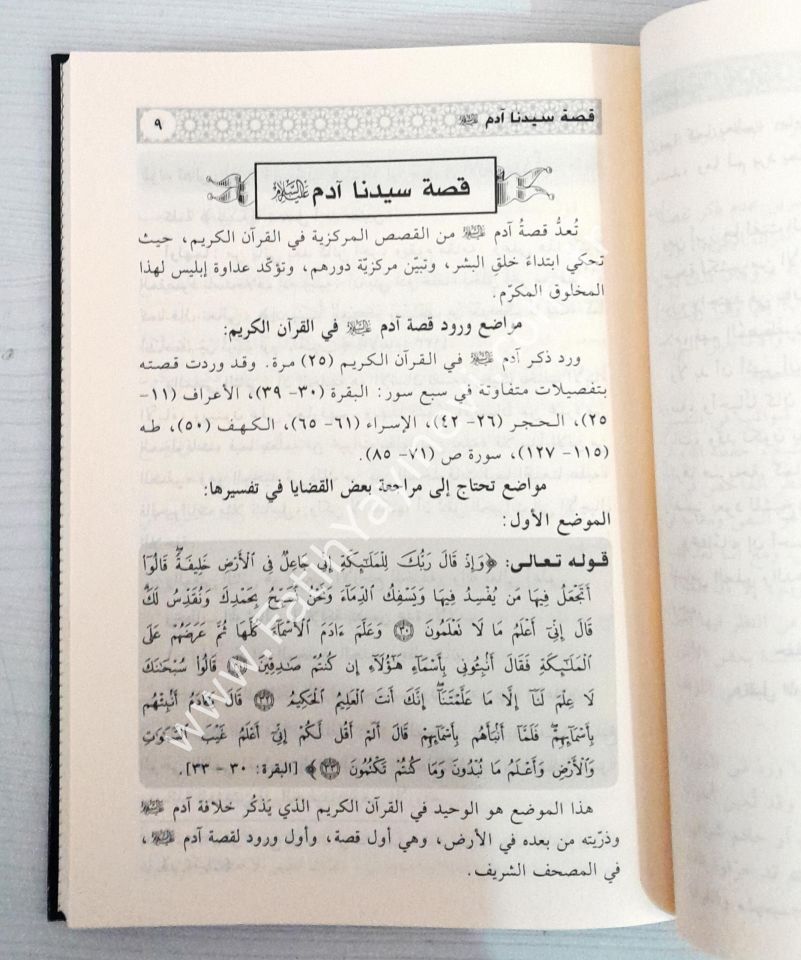 قصة سيدنا آدم ﵇
٩
قصة سيدنا آدم ﵇
تُعدُّ قصةُ آدم ﵇ من القصص المركزية في القرآن الكريم، حيث
تحكي ابتداءَ خلقِ البشر، وتبيّن مركزيّة دورهم، وتؤكّد عداوة إبليس لهذا
المخلوق المكرّم.
مواضع ورود قصة آدم ﵇ في القرآن الكريم:
ورد ذكر آدم ﵇ في القرآن الكريم (٢٥) مرة. وقد وردت قصته
بتفصيلات متفاوتة في سبع سور: البقرة (٣٠- ٣٩)، الأعراف (١١-
٢٥)، الحجر (٢٦- ٤٢)، الإسراء (٦١- ٦٥)، الكهف (٥٠)، طه
(١١٥- ١٢٧)، سورة ص (٧١- ٨٥).
مواضع تحتاج إلى مراجعة بعض القضايا في تفسيرها:
الموضع الأول:
قوله تعالى: ﴿وَإِذْ قَالَ رَبُّكَ لِلْمَلَٰٓئِكَةِ إِنِّي جَاعِلٌ فِي ٱلْأَرْضِ خَلِيفَةً ۖ قَالُوٓا۟
أَتَجْعَلُ فِيهَا مَن يُفْسِدُ فِيهَا وَيَسْفِكُ ٱلدِّمَآءَ وَنَحْنُ نُسَبِّحُ بِحَمْدِكَ وَنُقَدِّسُ لَكَ ۖ
قَالَ إِنِّىٓ أَعْلَمُ مَا لَا تَعْلَمُونَ ٣٠ وَعَلَّمَ ءَادَمَ ٱلْأَسْمَآءَ كُلَّهَا ثُمَّ عَرَضَهُمْ عَلَى
ٱلْمَلَٰٓئِكَةِ فَقَالَ أَنۢبِـُٔونِى بِأَسْمَآءِ هَٰٓؤُلَآءِ إِن كُنتُمْ صَٰدِقِينَ ٣١ قَالُوا۟ سُبْحَٰنَكَ
لَا عِلْمَ لَنَآ إِلَّا مَا عَلَّمْتَنَآ ۖ إِنَّكَ أَنتَ ٱلْعَلِيمُ ٱلْحَكِيمُ ٣٢ قَالَ يَٰٓـَٔادَمُ أَنۢبِئْهُم
بِأَسْمَآئِهِمْ ۖ فَلَمَّآ أَنۢبَأَهُم بِأَسْمَآئِهِمْ قَالَ أَلَمْ أَقُل لَّكُمْ إِنِّىٓ أَعْلَمُ غَيْبَ ٱلسَّمَٰوَٰتِ
وَٱلْأَرْضِ وَأَعْلَمُ مَا تُبْدُونَ وَمَا كُنتُمْ تَكْتُمُونَ ٣٣﴾ [البقرة: ٣٠ – ٣٣].
هذا الموضع هو الوحيد في القرآن الكريم الذي يَذكُر خلافة آدم ﵇
وذرّيته من بعده في الأرض، وهي أول قصة، وأول ورود لقصة آدم ﵇،
في المصحف الشريف.